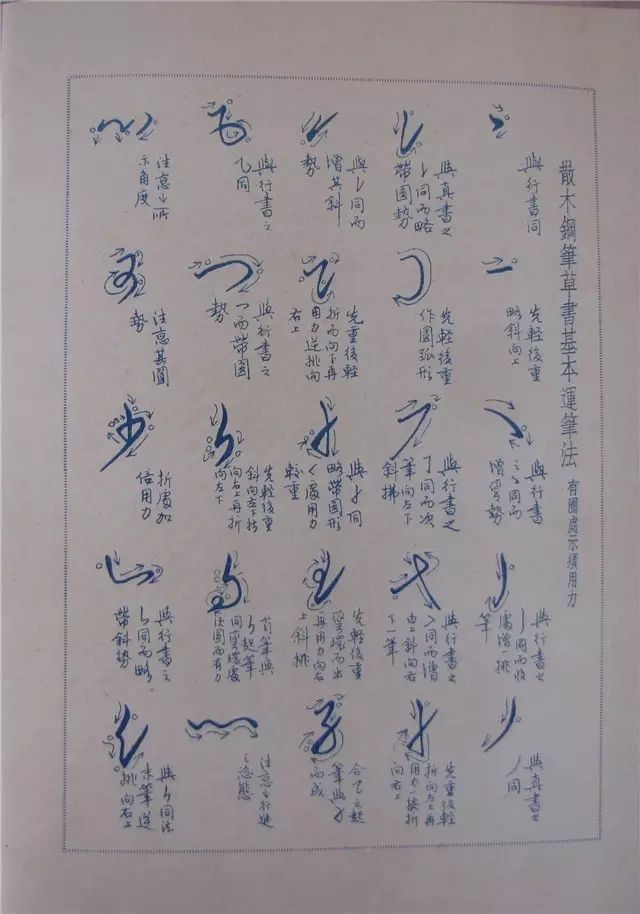 散木鋼筆草書基本運筆法 有圈處示須用力
與行書同
先輕後重
略斜向上
與行書之
同而
增彎勢
與行書之
同而收
處增挑
筆
與真書之
丿同
與真書之
同而略
帶圓勢
先輕後重
作圓弧形
與行書之
了同而次
筆向左下
斜拂
與行書之
同而增
由上斜向右
下一筆
先重後輕
折向左上再
用力一按折
向右上
與
同而
增其斜
勢
先重後輕
折而向下再
用力逆挑向
右上
與
同
略帶圓形
處用力
較重
先輕後重
彎環而出
再用力向右
上斜挑
合乙之起
筆與
而成
與行書之
乙同
與行書之
乛而帶圓
勢
先輕後重
斜向左下按
向右上再折
向左下
首筆與
起筆
同彎環處
須圓而有力
注意其行進
之姿態
注意其所
示角度
注意其圓
勢
折處加
倍用力
與行書之
同而略
帶斜勢
與
同法
末筆逆
挑向右上